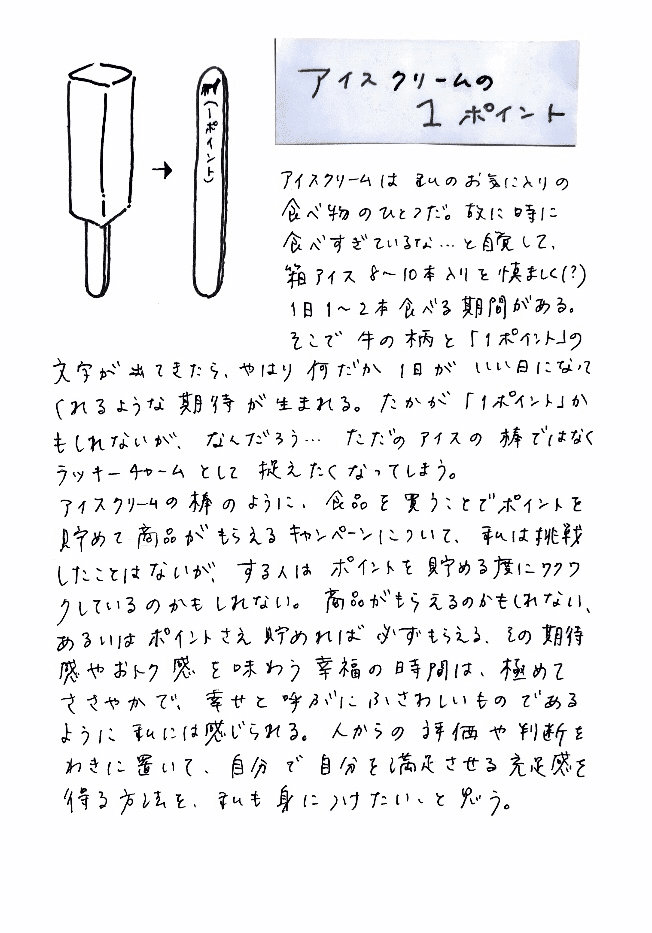 アイスクリームの
1 ポイント
(1ポイント)
アイスクリームは 私のお気に入りの
食べ物のひとつだ。故に時に
食べすぎているな…と自覚して、
箱アイス 8〜10本入りを慎ましく(?)
1日1〜2本食べる期間がある。
そこで 牛の柄と「1ポイント」の
文字が出てきたら、やはり何だか 1日が いい日になって
くれるような期待が生まれる。たかが「1ポイント」か
もしれないが、なんだろう… ただのアイスの棒ではなく
ラッキーチャームとして 捉えたくなってしまう。
アイスクリームの棒のように、食品を買うことでポイントを
貯めて商品がもらえるキャンペーンについて、私は挑戦
したことはないが、する人は ポイントを貯める度にワクワ
クしているのかもしれない。商品がもらえるのかもしれない、
あるいは ポイントさえ貯めれば必ずもらえる、その期待
感やおトク感を味わう幸福の時間は、極めて
ささやかで、幸せと呼ぶにふさわしいものである
ように私には感じられる。人からの 評価や判断を
わきに置いて、自分で自分を満足させる充足感を
得る方法を、私も身につけたい、と思う。